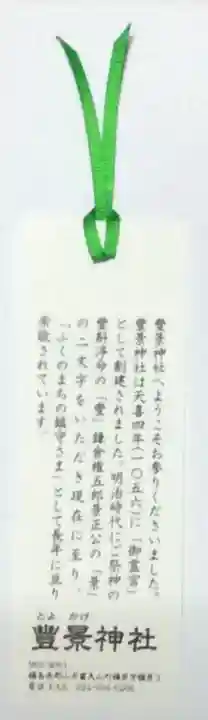 豊景神社へようこそお参りくださいました。
豊景神社は天喜四年(一〇五六)に「御霊宮」
として創建されました。明治時代にご祭神の
豊斟渟命の「豊」鎌倉権五郎景正公の「景」
の二文字をいただき現在に至り、
「ふくのまちの鎮守さま」として長年に亘り
崇敬されています。
とよ かげ
豊景神社